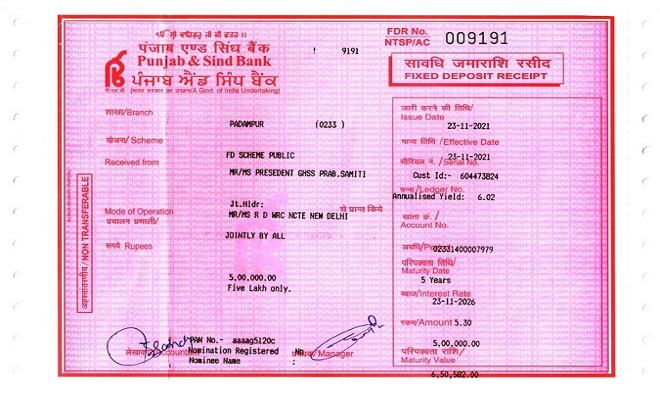 ੧ਓ ਸ੍ਰੀ ਵਾਹਿਗੁਰੂ ਜੀ ਕੀ ਫਤਹ
ਪੰਜਾਬ ਐਂਡ ਸਿੰਧ ਬੈਂਕ
Punjab & Sind Bank
(A Govt. of India Undertaking)
! 9191
FDR No.
NTSP/AC 009191
सावधि जमाराशि रसीद
FIXED DEPOSIT RECEIPT
शाखा/Branch
PADAMPUR (0233 )
योजना/ Scheme
FD SCHEME PUBLIC
Received from
MR/MS PRESEDENT GHSS PRAB.SAMITI
Jt.Hldr:
से प्राप्त किये
Mode of Operation
MR/MS R D WRC NCTE NEW DELHI
प्रचालन प्रणाली/
JOINTLY BY ALL
रूपये Rupees
5,00,000.00
Five Lakh only.
अहस्तांतरणीय/ NON TRANSFERABLE
PAN No.- aaaag5120c
Nomination Registered No
Nominee Name :
/Manager
जारी करने की तिथि/
Issue Date
23-11-2021
मान्य तिथि /Effective Date
23-11-2021
सीरियल नं. /Serial No.
Cust Id:- 604473824
पन्ना/Ledger No.
Annualised Yield: 6.02
खाता क्रं. /
Account No.
02331400007979
अवधि/
परिपक्वता तिथि/
Maturity Date
5 Years
ब्याज/Interest Rate
23-11-2026
रकम/Amount 5.30
5,00,000.00
परिपक्वता राशि/
Maturity Value
6,50,582.00